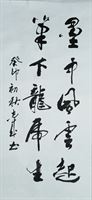 墨中風雲起
筆下龍虎生
癸卯初秋